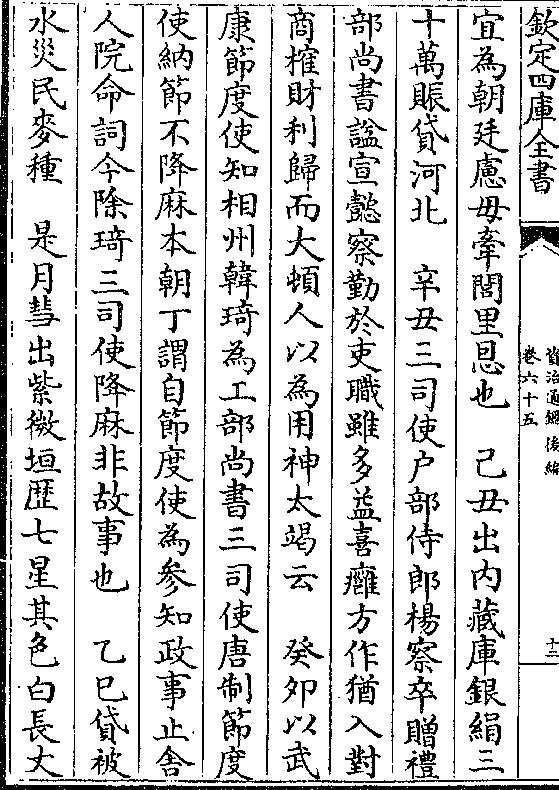 欽定四庫全書
資治通鑑後編
卷六十五
十三
宜為朝廷慮毋牽閭里恩也　己丑出内藏庫銀絹三
十萬賑貸河北　辛丑三司使户部侍郎楊察卒贈禮
部尚書諡宣懿察勤於吏職雖多益喜癰方作猶入對
商榷財利歸而大頓人以為用神太竭云　癸卯以武
康節度使知相州韓琦為工部尚書三司使唐制節度
使納節不降麻本朝丁謂自節度使為參知政事止舍
人院命詞今除琦三司使降麻非故事也　乙巳貸被
水災民麥種　是月彗出紫微垣歴七星其色白長丈